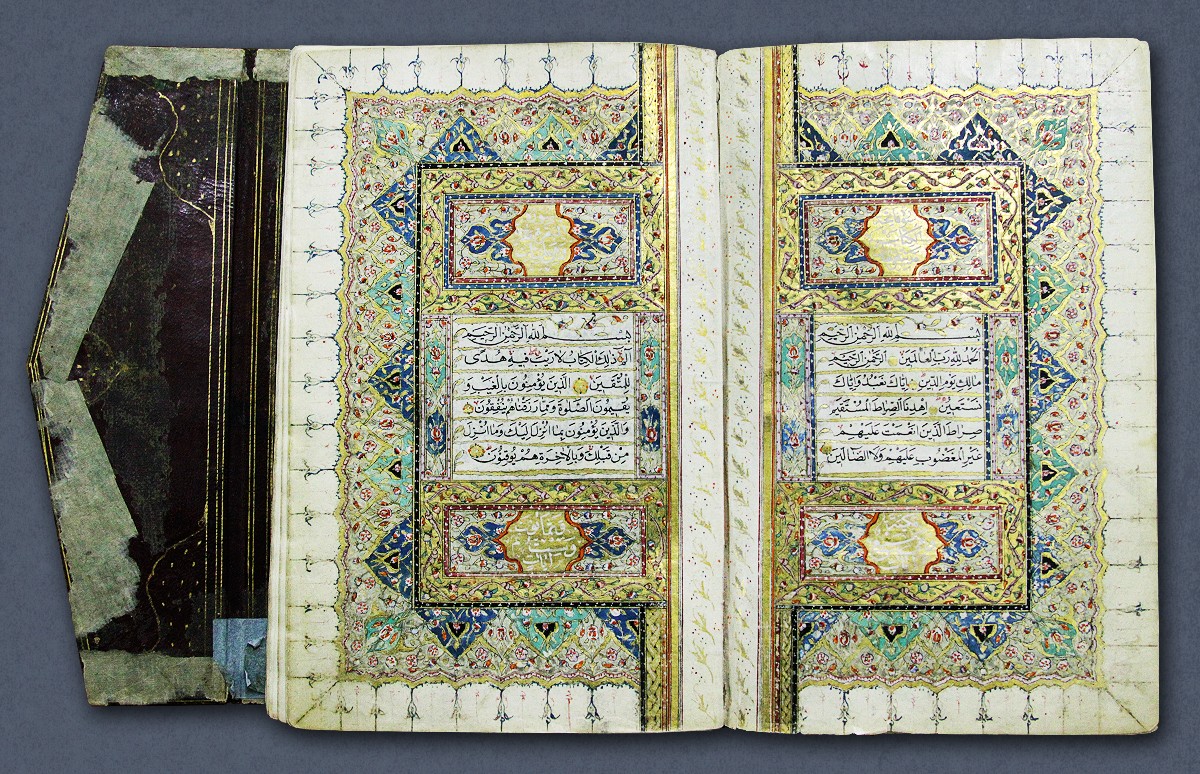 بسم الله الرحمن الرحيم
الحمد لله رب العالمين الرحمن الرحيم
مالك يوم الدين اياك نعبد واياك
نستعين اهدنا الصراط المستقيم
صراط الذين انعمت عليهم
غير المغضوب عليهم ولا الضالين
بسم الله الرحمن الرحيم
الم ذلك الكتاب لا ريب فيه هدى
للمتقين الذين يؤمنون بالغيب و
يقيمون الصلوة ومما رزقناهم ينفقون
والذين يؤمنون بما انزل اليك وما انزل
من قبلك وبالاخرة هم يوقنون